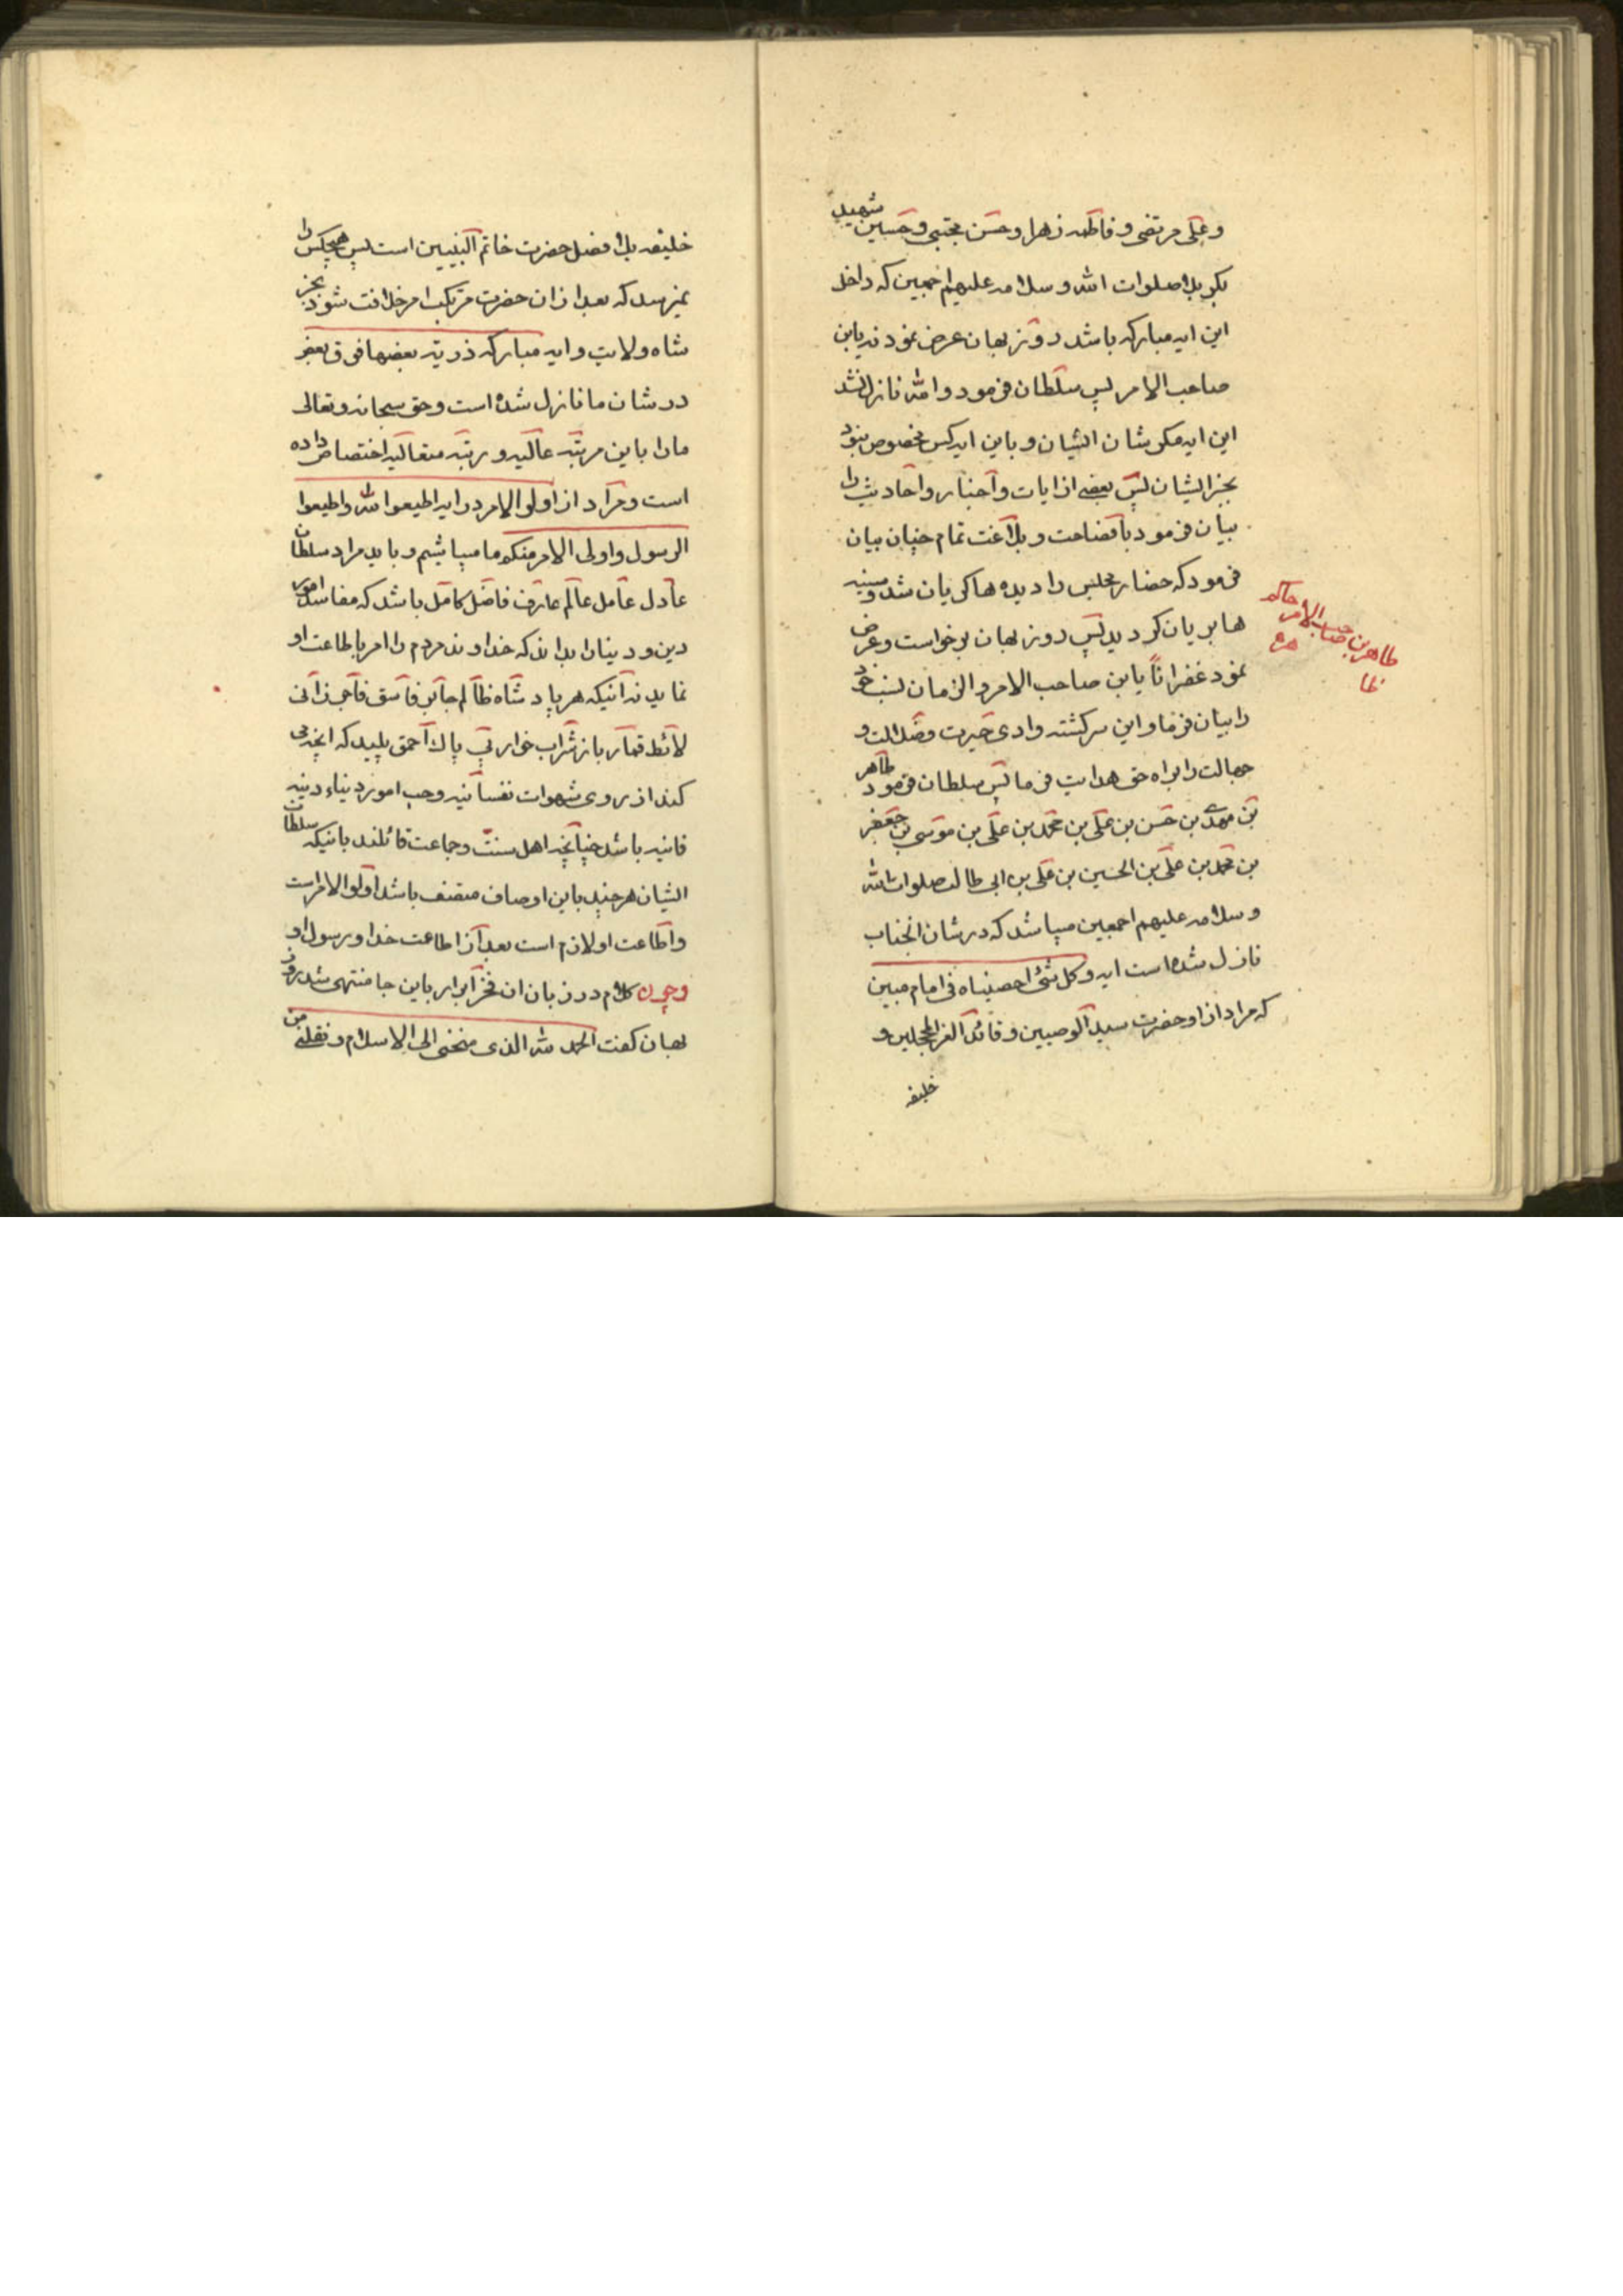 وعلی مرتضی و فاطمه زهرا و حسن مجتبی و حسین شهید
بکربلا صلوات الله و سلامه علیهم اجمعین که داخل
این ایه مبارکه باشد روزبهان عرض نمودند یابن
صاحب الامر پس سلطان فرمود والله نازل نشد
این ایه مکر بشان ایشان و باین ایه کس مخصوص نبود
بجز ایشان پس بعضی از ایات و اخبار و احادیث را
بیان فرمود با فصاحت و بلاغت تمام چنان بیان
فرمود که حضار مجلس را دیده ها کریان شد و سینه
ها بریان کردید پس روزبهان برخواست و عرض
نمود غفرانا یابن صاحب الامر و الزمان نسب خود
را بیان فرما و این سرکشته وادی حیرت و ضلالت و
جهالت را براه حق هدایت فرما پس سلطان فرمود طاهر
بن مهدی بن حسن بن علی بن محمد بن علی بن موسی بن جعفر
بن محمد بن علی بن الحسین بن علی بن ابی طالب صلوات الله
و سلامه علیهم اجمعین میباشد که در شان انجناب
نازل شده است ایه وکل شیء احصیناه فی امام مبین
که مراد از او حضرت سید الوصیین و قائد الغر المحجلین و
خلیفه
طاهر بن صاحب الامر حاکم
خلیفه بلا فضل حضرت خاتم النبیین است پس هیچکس را
نمیرسد که بعد از ان حضرت مرتکب امر خلافت شود بجز
شاه ولایت و ایه مبارکه ذریته بعضها فوق بعض
در شان ما نازل شده است و حق سبحانه و تعالی
مارا باین مرتبه عالیه و رتبه متعالیه اختصاص داده
است و مراد از اولو الامر در ایه اطیعوا الله واطیعوا
الرسول واولی الامر منکم ما میباشیم و باید مراد سلطان
عادل عامل عالم عارف فاضل کامل باشد که مفاسد امور
دین و دینارا بداند که خداوند مردم را امر باطاعت او
نماید نه آنیکه هر پادشاه ظالم جابر فاسق فاجر زانی
لائط قمار باز شراب خوار بی باک احمق پلید که انچه می
کند از روی شهوات نفسانیه و حب امور دنیاء دنیه
فانیه باشد چنانچه اهل سنت و جماعت قائلند بانیکه سلطان
ایشان هرچند باین اوصاف متصف باشد اولو الامر است
واطاعت او لازم است بعد از اطاعت خدا و رسول او
وچون کلام در زبان ان فخر ابرار باین جا منتهی شد روز
بهان کفت الحمد لله الذی منحنی الی الاسلام ونقلنی من